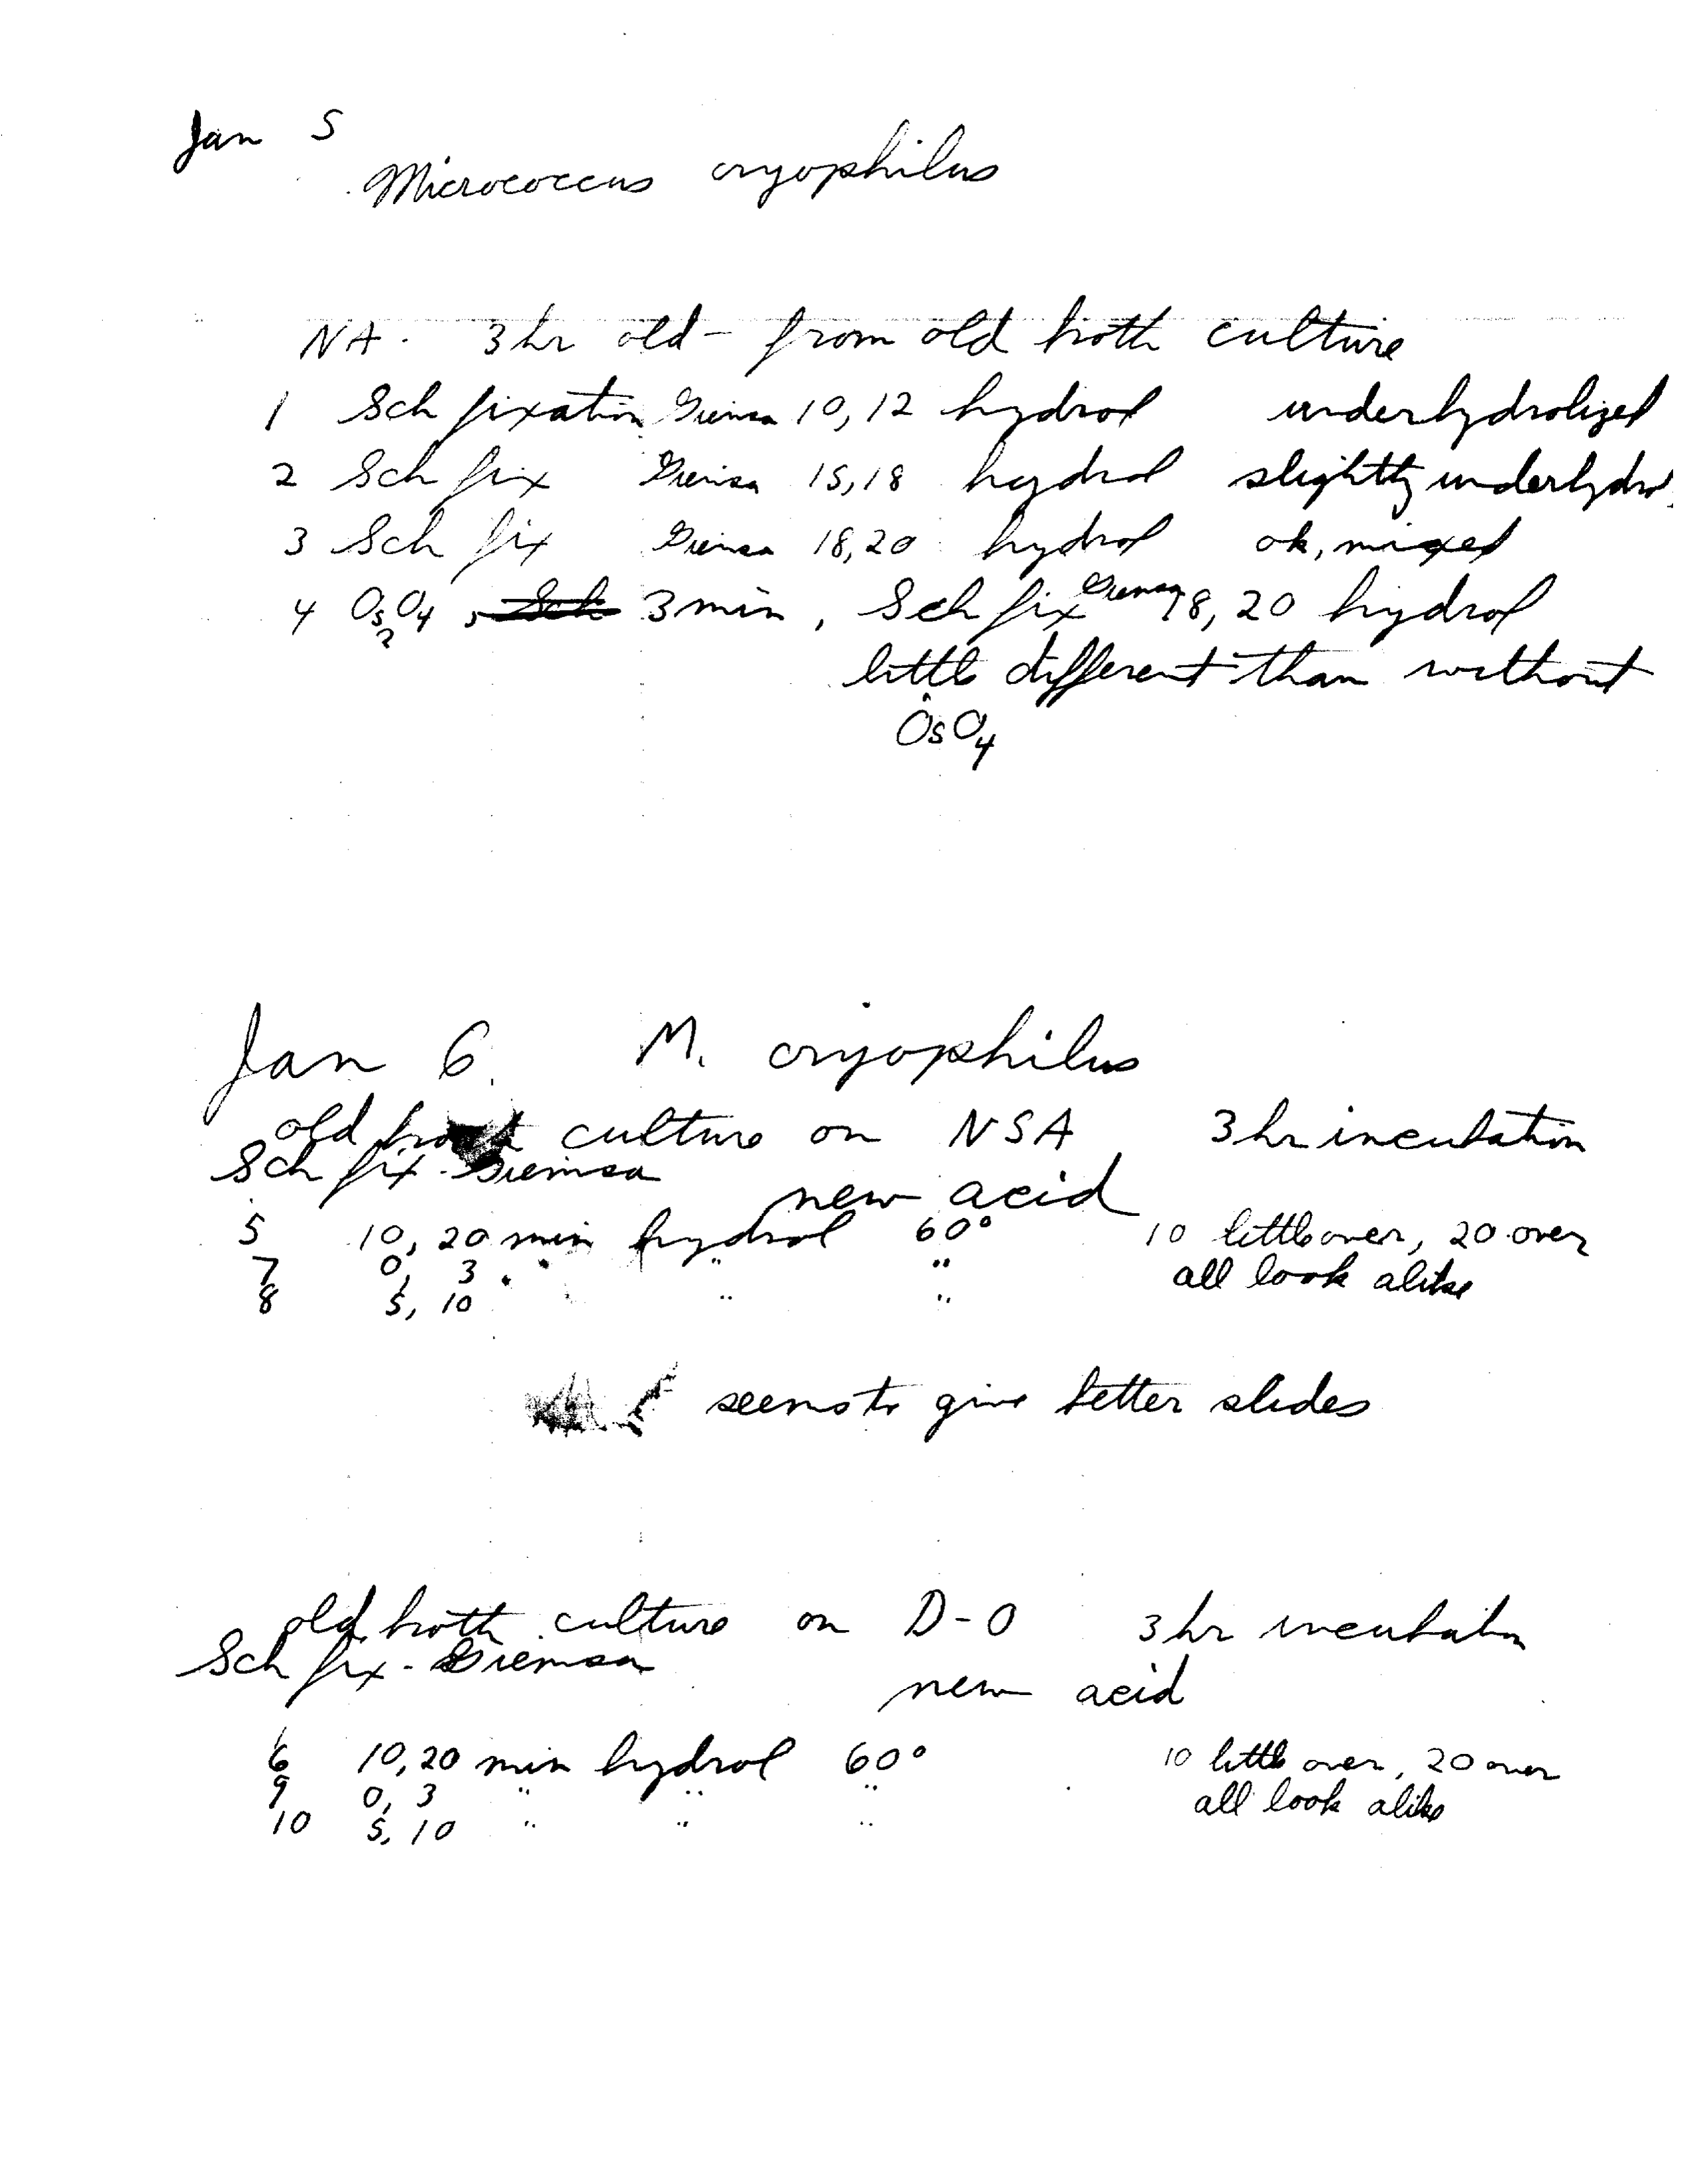 Jan 5
Micrococcus cryophilus
NA. 3 hr old - from old broth culture
1 Sch fixation Giemsa 10, 12 hydrol underhydrolized
2 Sch fix Giemsa 15, 18 hydrol slightly underhydrol
3 Sch fix Giemsa 18, 20 hydrol ok, mixed
4 OsO4, 3 min, Sch fix Giemsa 18, 20 hydrol
little different than without
OsO4
Jan 6. M. cryophilus
old broth culture on NSA 3 hr incubation
Sch fix - Giemsa
new acid
5 10, 20 min hydrol 60° 10 little over, 20 over
7 0, 3 " " " all look alike
8 5, 10 " "
seems to give better slides
old broth culture on D-O 3 hr incubation
Sch fix - Giemsa
new acid
6 10, 20 min hydrol 60° 10 little over, 20 over
9 0, 3 " " " all look alike
10 5, 10 " " "